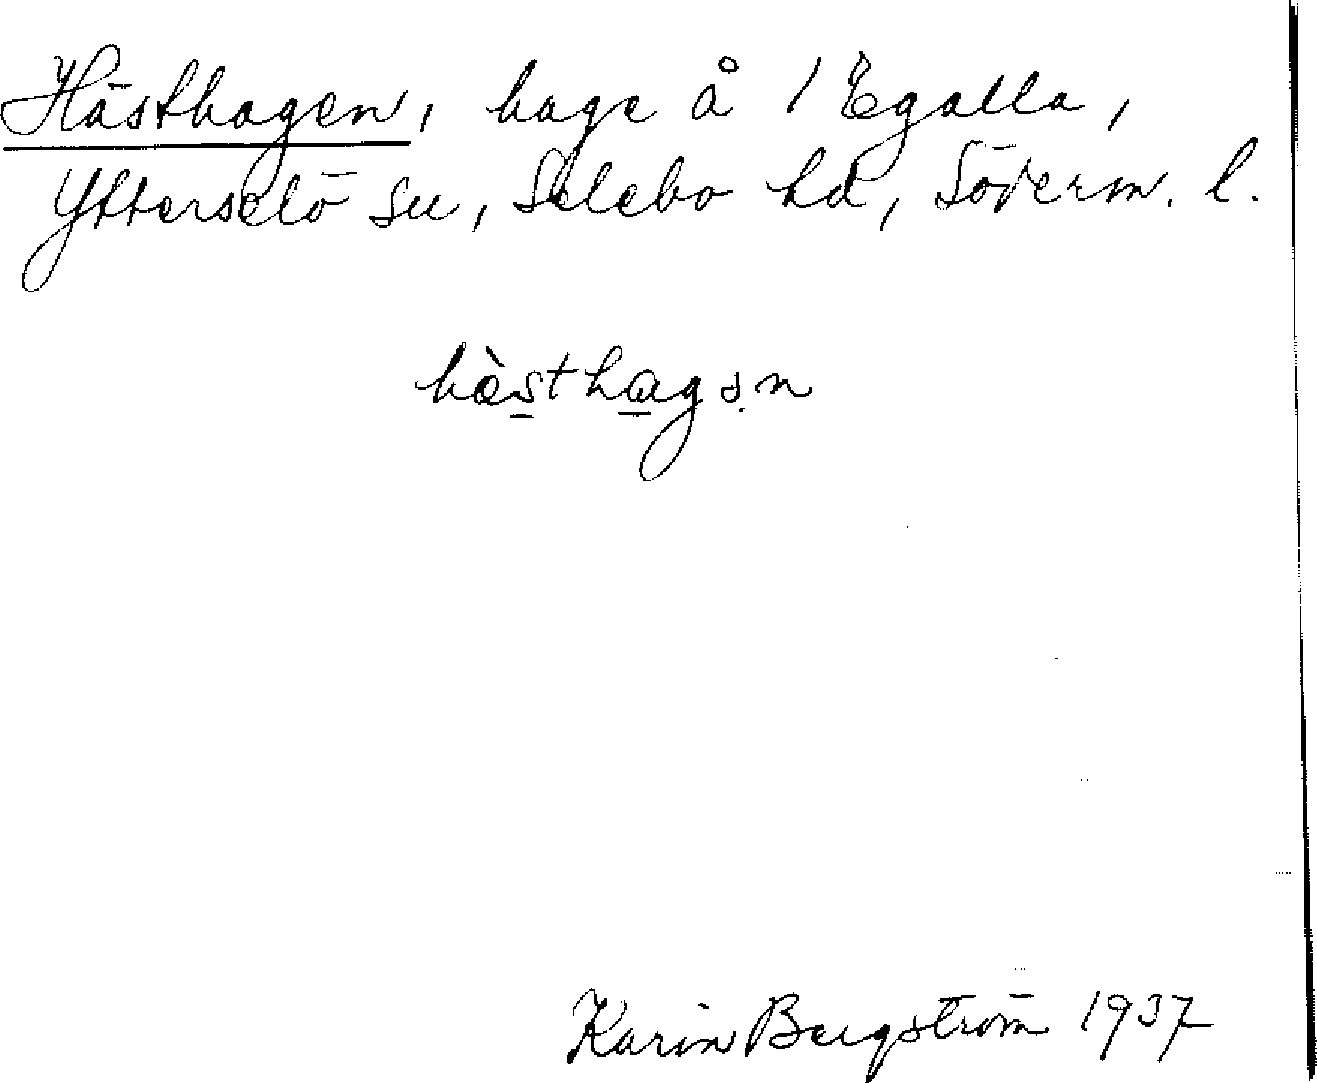 Hästhagen, hage å 1 Egalla,
Ytterselö sn, Selebo hd, Söderm. l.
hæ̀s̲tha̲gə̣n
Karin Bergström 1937